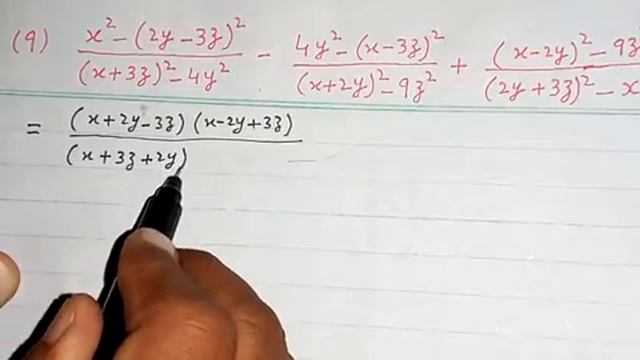 (9) \frac{x^2-(2y-3z)^2}{(x+3z)^2-4y^2} - \frac{4y^2-(x-3z)^2}{(x+2y)^2-9z^2} + \frac{(x-2y)^2-9z}{(2y+3z)^2-x}
= \frac{(x+2y-3z)(x-2y+3z)}{(x+3z+2y)}